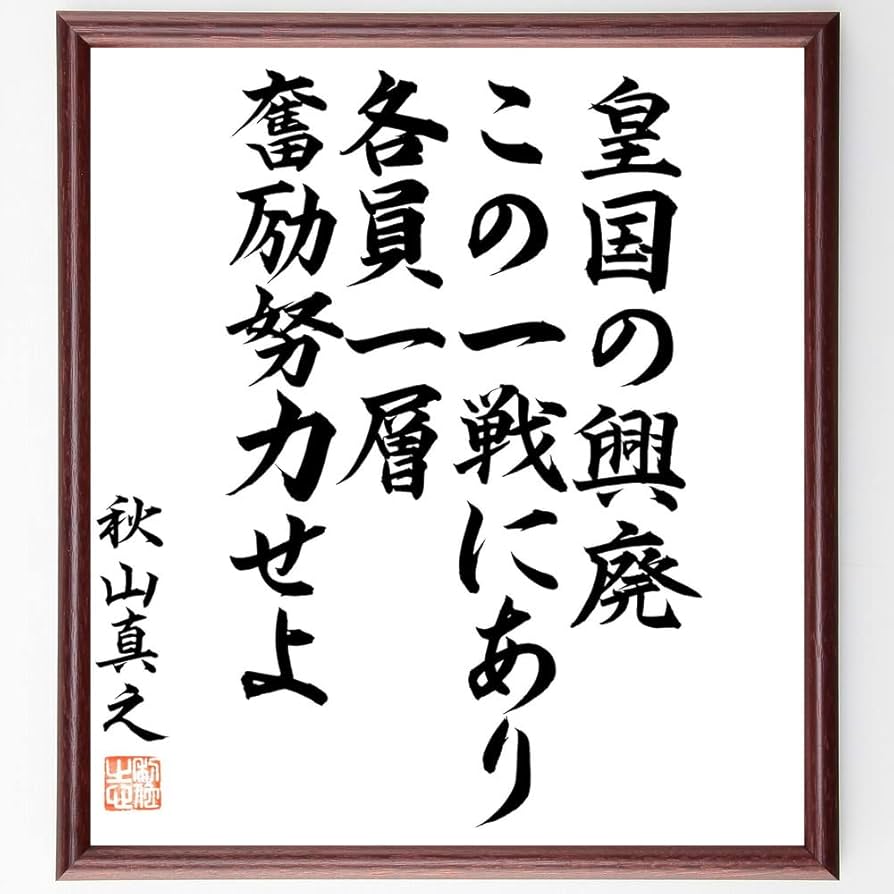 皇国の興廃
この一戦にあり
各員一層
奮励努力せよ
秋山真之